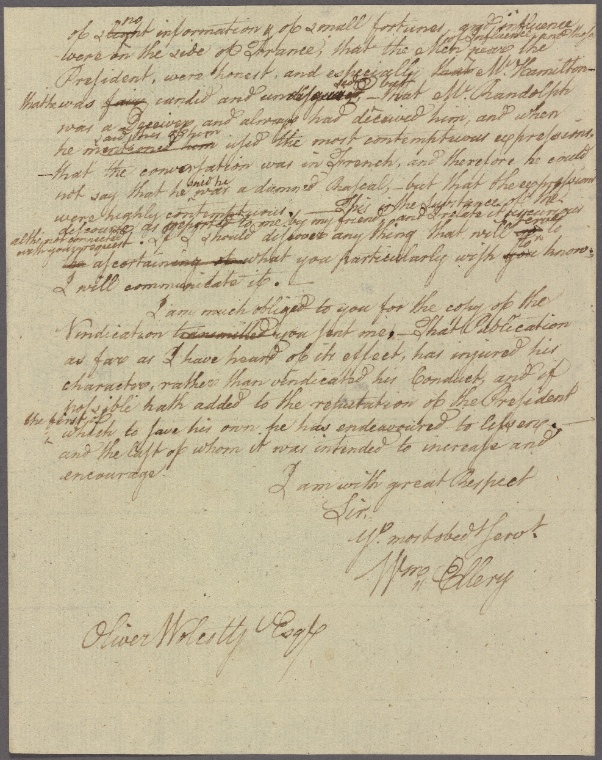 no
of slight information & of small fortunes and influence
of Influence, and those
were on the side of France; that the Men near the
President, were honest, and especially that Mr. Hamilton
that he was fair candid and but that Mr. Randolph
was a Deceiver, and always had deceived him, and when
said that of him
he mentioned him used the most contemptuous expressions,
—that the conversation was in French, and therefore he could
said he
not say that he was a damned Rascal,—but that the expressions
were highly contemptuous. — This is the substance of the
discourse as reported to me by my friend, and I relate it
altho not connected with your request. If I should discover any thing that will serve to
be ascertaining of what you particularly wish to know
I will communicate it. —
I am much obliged to you for the copy of the
Vindication transmitted you sent me; — That Publication
as far as I have heard of its effect, has injured his
character, rather than vindicated his Conduct, and if
possible hath added to the reputation of the President
the first of
which to save his own he has endeavoured to lessen; —
and the last of whom it was intended to increase and
encourage.
I am with great Respect
Sir,
Yr. most obedt servt.
Wm Ellery
Oliver Wolcott Esqr